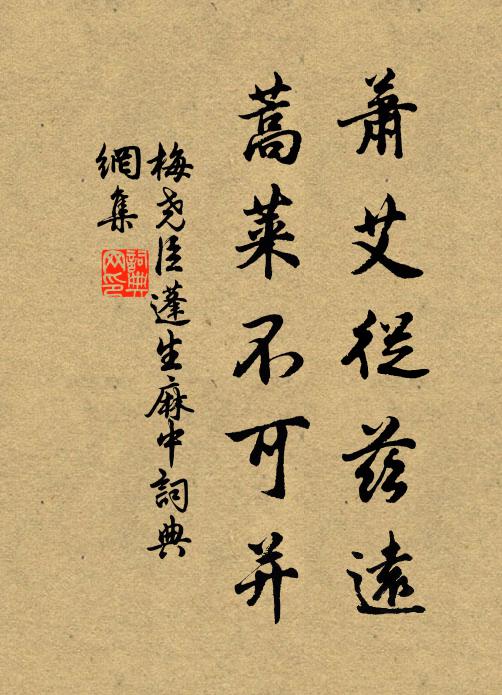 蕭艾從茲遠
蒿萊不可并
梅堯臣蓬生麻中詞典
網集
詞典
网印